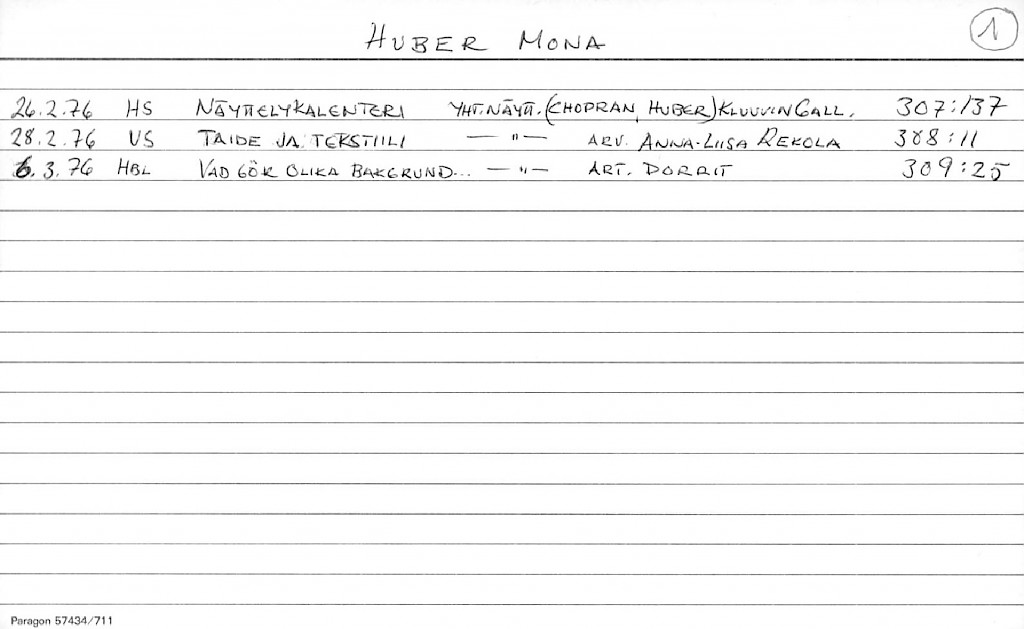 HUBER MONA 1
26.2.76 HS NÄYTTELYKALENTERI YHT.NÄYTT. (CHOPRAN, HUBER) KLUUVIN GALL. 307:137
28.2.76 US TAIDE JA TEKSTIILI — " — ARV. ANNA-LIISA REKOLA 308:11
6.3.76 HBL VAD GÖR OLIKA BAKGRUND... — " — ART. DORRIT 309:25
Paragon 57434/711